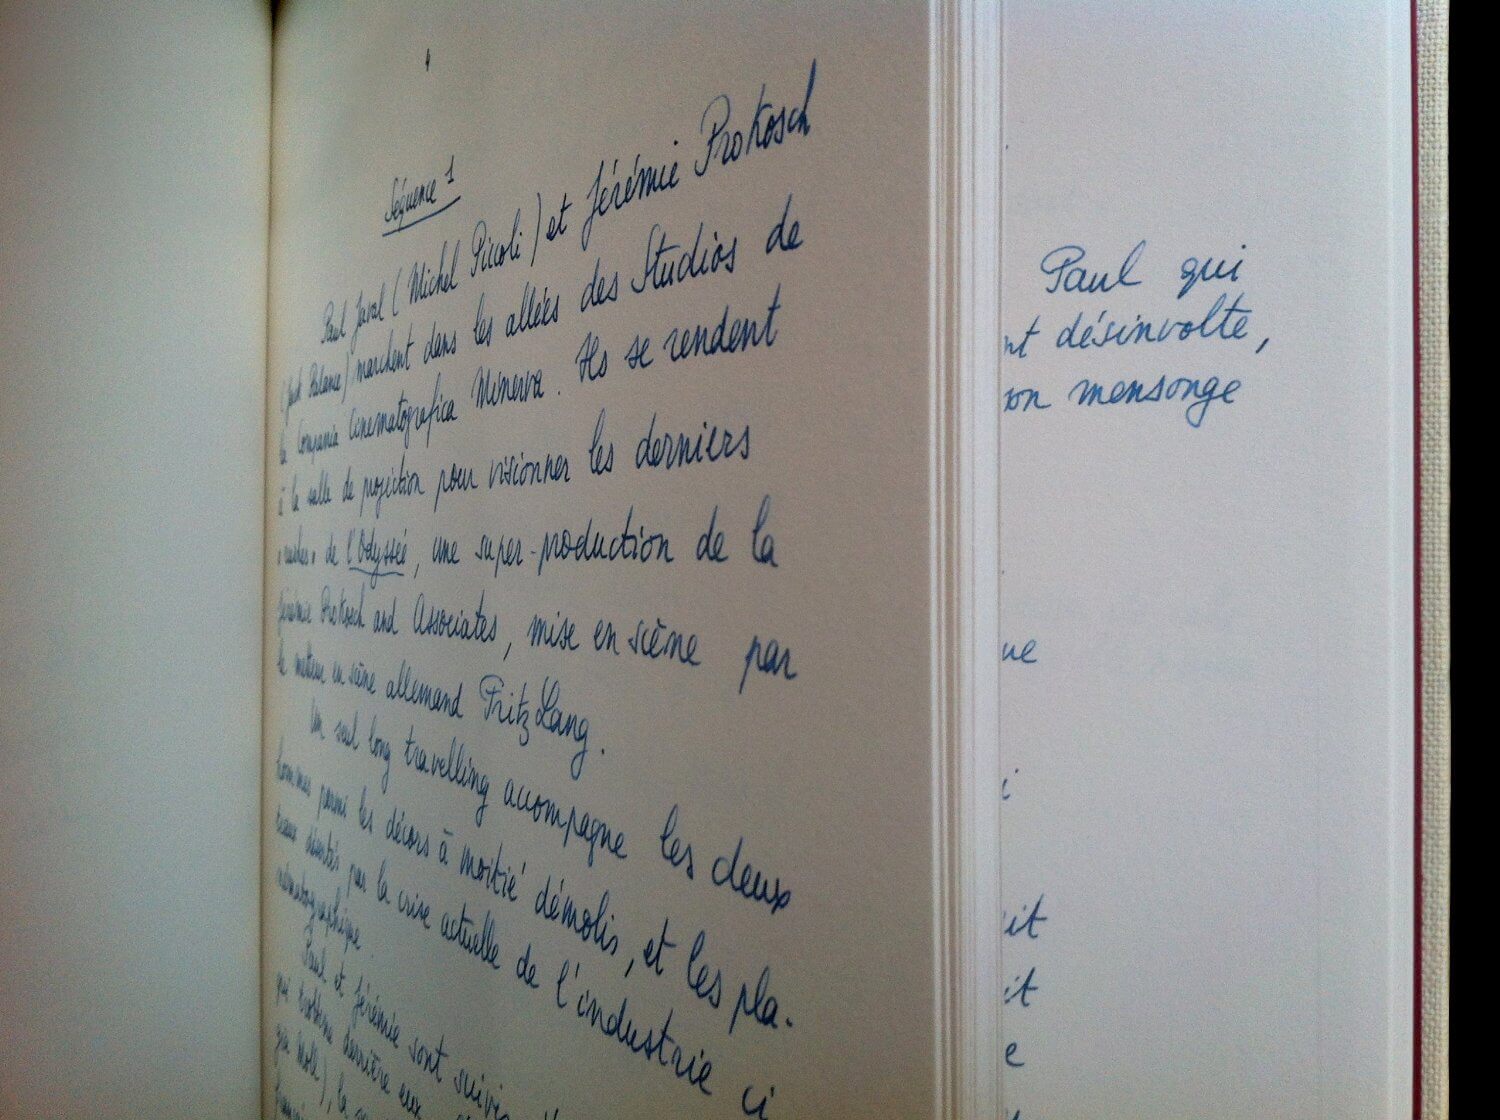 Séquence 1
Paul Javal (Michel Piccoli) et Jérémie Prokosch
(Jack Palance) marchent dans les allées des Studios de
la Compania Cinematografica Minerva. Ils se rendent
à la salle de projection pour visionner les derniers
"rushes" de l'Odyssée, une super-production de la
Jérémie Prokosch and Associates, mise en scène par
le metteur en scène allemand Fritz Lang.
Un seul long travelling accompagne les deux
hommes parmi les décors à moitié démolis, et les pla-
teaux désertés par la crise actuelle de l'industrie ci
nématographique.
Paul et Jérémie sont suivis
qui trottine derrière eux
gia Moll), la
Paul qui
nt désinvolte,
son mensonge
ue
i
it
it
e